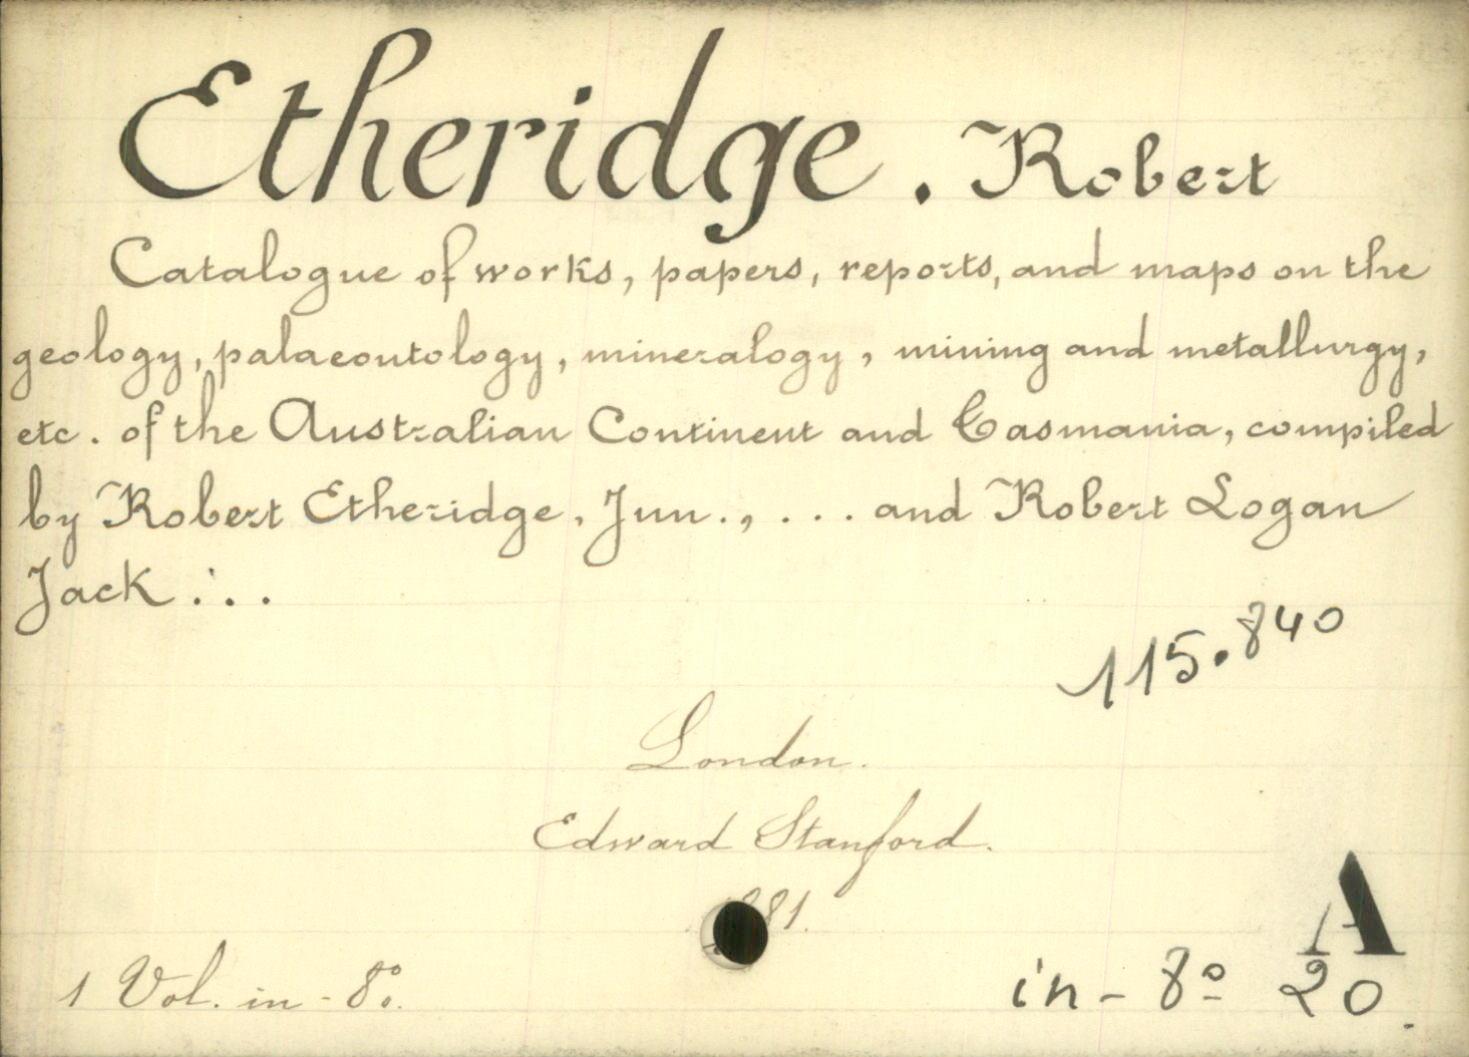 Etheridge. Robert
Catalogue of works, papers, reports, and maps on the
geology, palaeontology, mineralogy, mining and metallurgy,
etc. of the Australian Continent and Tasmania, compiled
by Robert Etheridge, Jun., ... and Robert Logan
Jack ...
115.840
London.
Edward Stanford.
881.
A
1 Vol. in-8º.
in-8º 20.